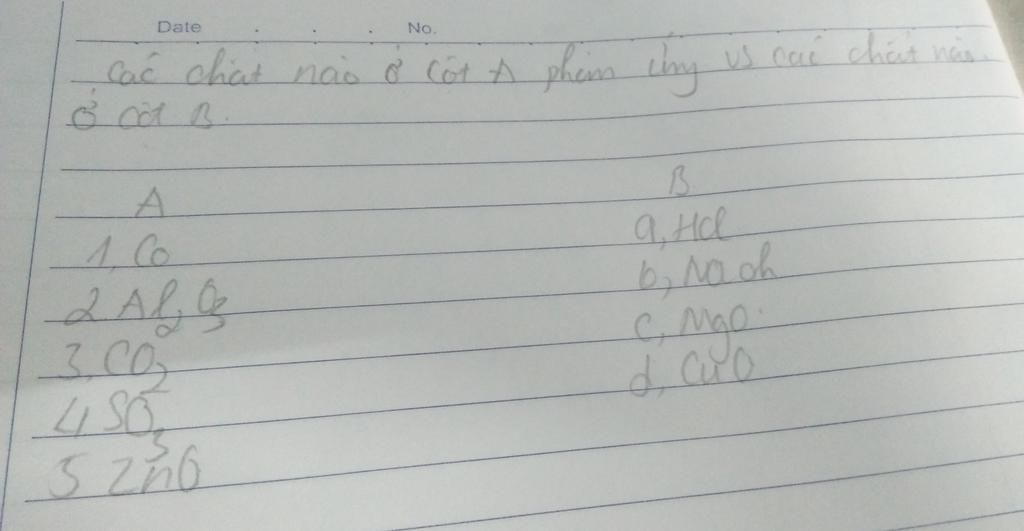 Date . . . No.
Các chất nào ở cột A phản ứng vs các chất nào
ở cột B.
A B
1, Co a, HCl
2 Al2O3 b, Na oh
3, CO2 c, MgO
4 SO3 d, CuO
5 ZnO